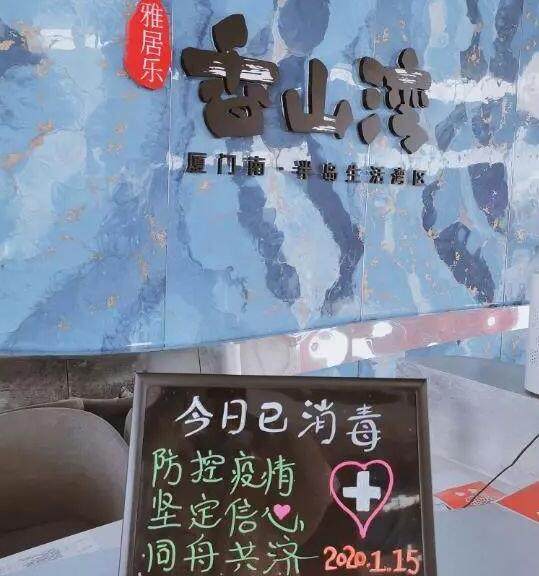 雅居乐
香山湾
厦门南·半岛生活湾区
今日已消毒
防控疫情
坚定信心
同舟共济
2020.1.15